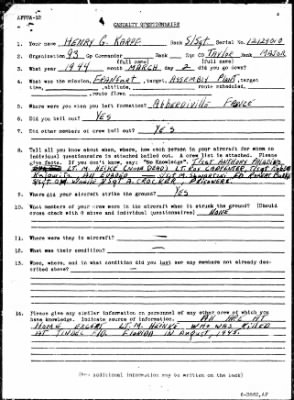 AFPPA-12
CASUALTY QUESTIONNAIRE
1. Your name HENRY G. KARPF Rank S/Sgt. Serial No.
2. Organization 93 Gp Commander Rank Sqn CO TAYLOR Rank MAJOR
(full name) (full name)
3. What year 1944 month MARCH day 2 did you go down?
4. What was the mission, FRANKFORT, target, ASSEMBLY PLANT, target
time, , altitude, route scheduled,
, route flown
5. Where were you when you left formation? ABBERDIVILLE FRANCE
6. Did you bail out? YES
7. Did other members of crew bail out? YES
8. Tell all you know about when, where, how each person in your aircraft for whom no
individual questionnaire is attached bailed out. A crew list is attached. Please
give facts. If you don't know, say: "No Knowledge".
LT. M. HEINKE (NOW DEAD) LT. ROY CARPENTER,
9. Where did your aircraft strike the ground? YES
10. What members of your crew were in the aircraft when it struck the ground? (Should
cross check with 8 above and individual questionnaires) NONE
11. Where were they in aircraft?
12. What was their condition?
13. When, where, and in what condition did you last see any members not already des-
cribed above?
14. Please give any similar information on personnel of any other crew of which you
have knowledge. Indicate source of information. ALL ARE AT
HOME EXCEPT LT. M. HEINKE WHO WAS KILLED
AT FLORIDA IN AUGUST, 1945.
(Any additional information may be written on the back)